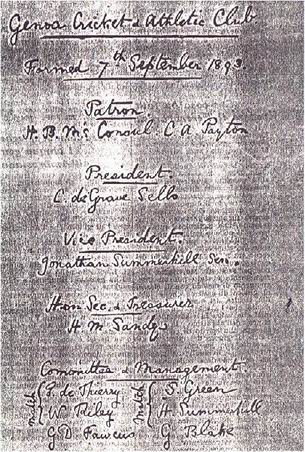 Genoa Cricket & Athletic Club
Formed 7th September 1893
Patron
H. B. M's Consul C A Payton
President.
C. de Grave Sells
Vice President.
Jonathan Summerhill Senr
Hon Sec. & Treasurer
H M Sandys
Committee & Management.
S. de Thierry S. Green
W. Riley H. Summerhill
G. D. Fawcus G Blake